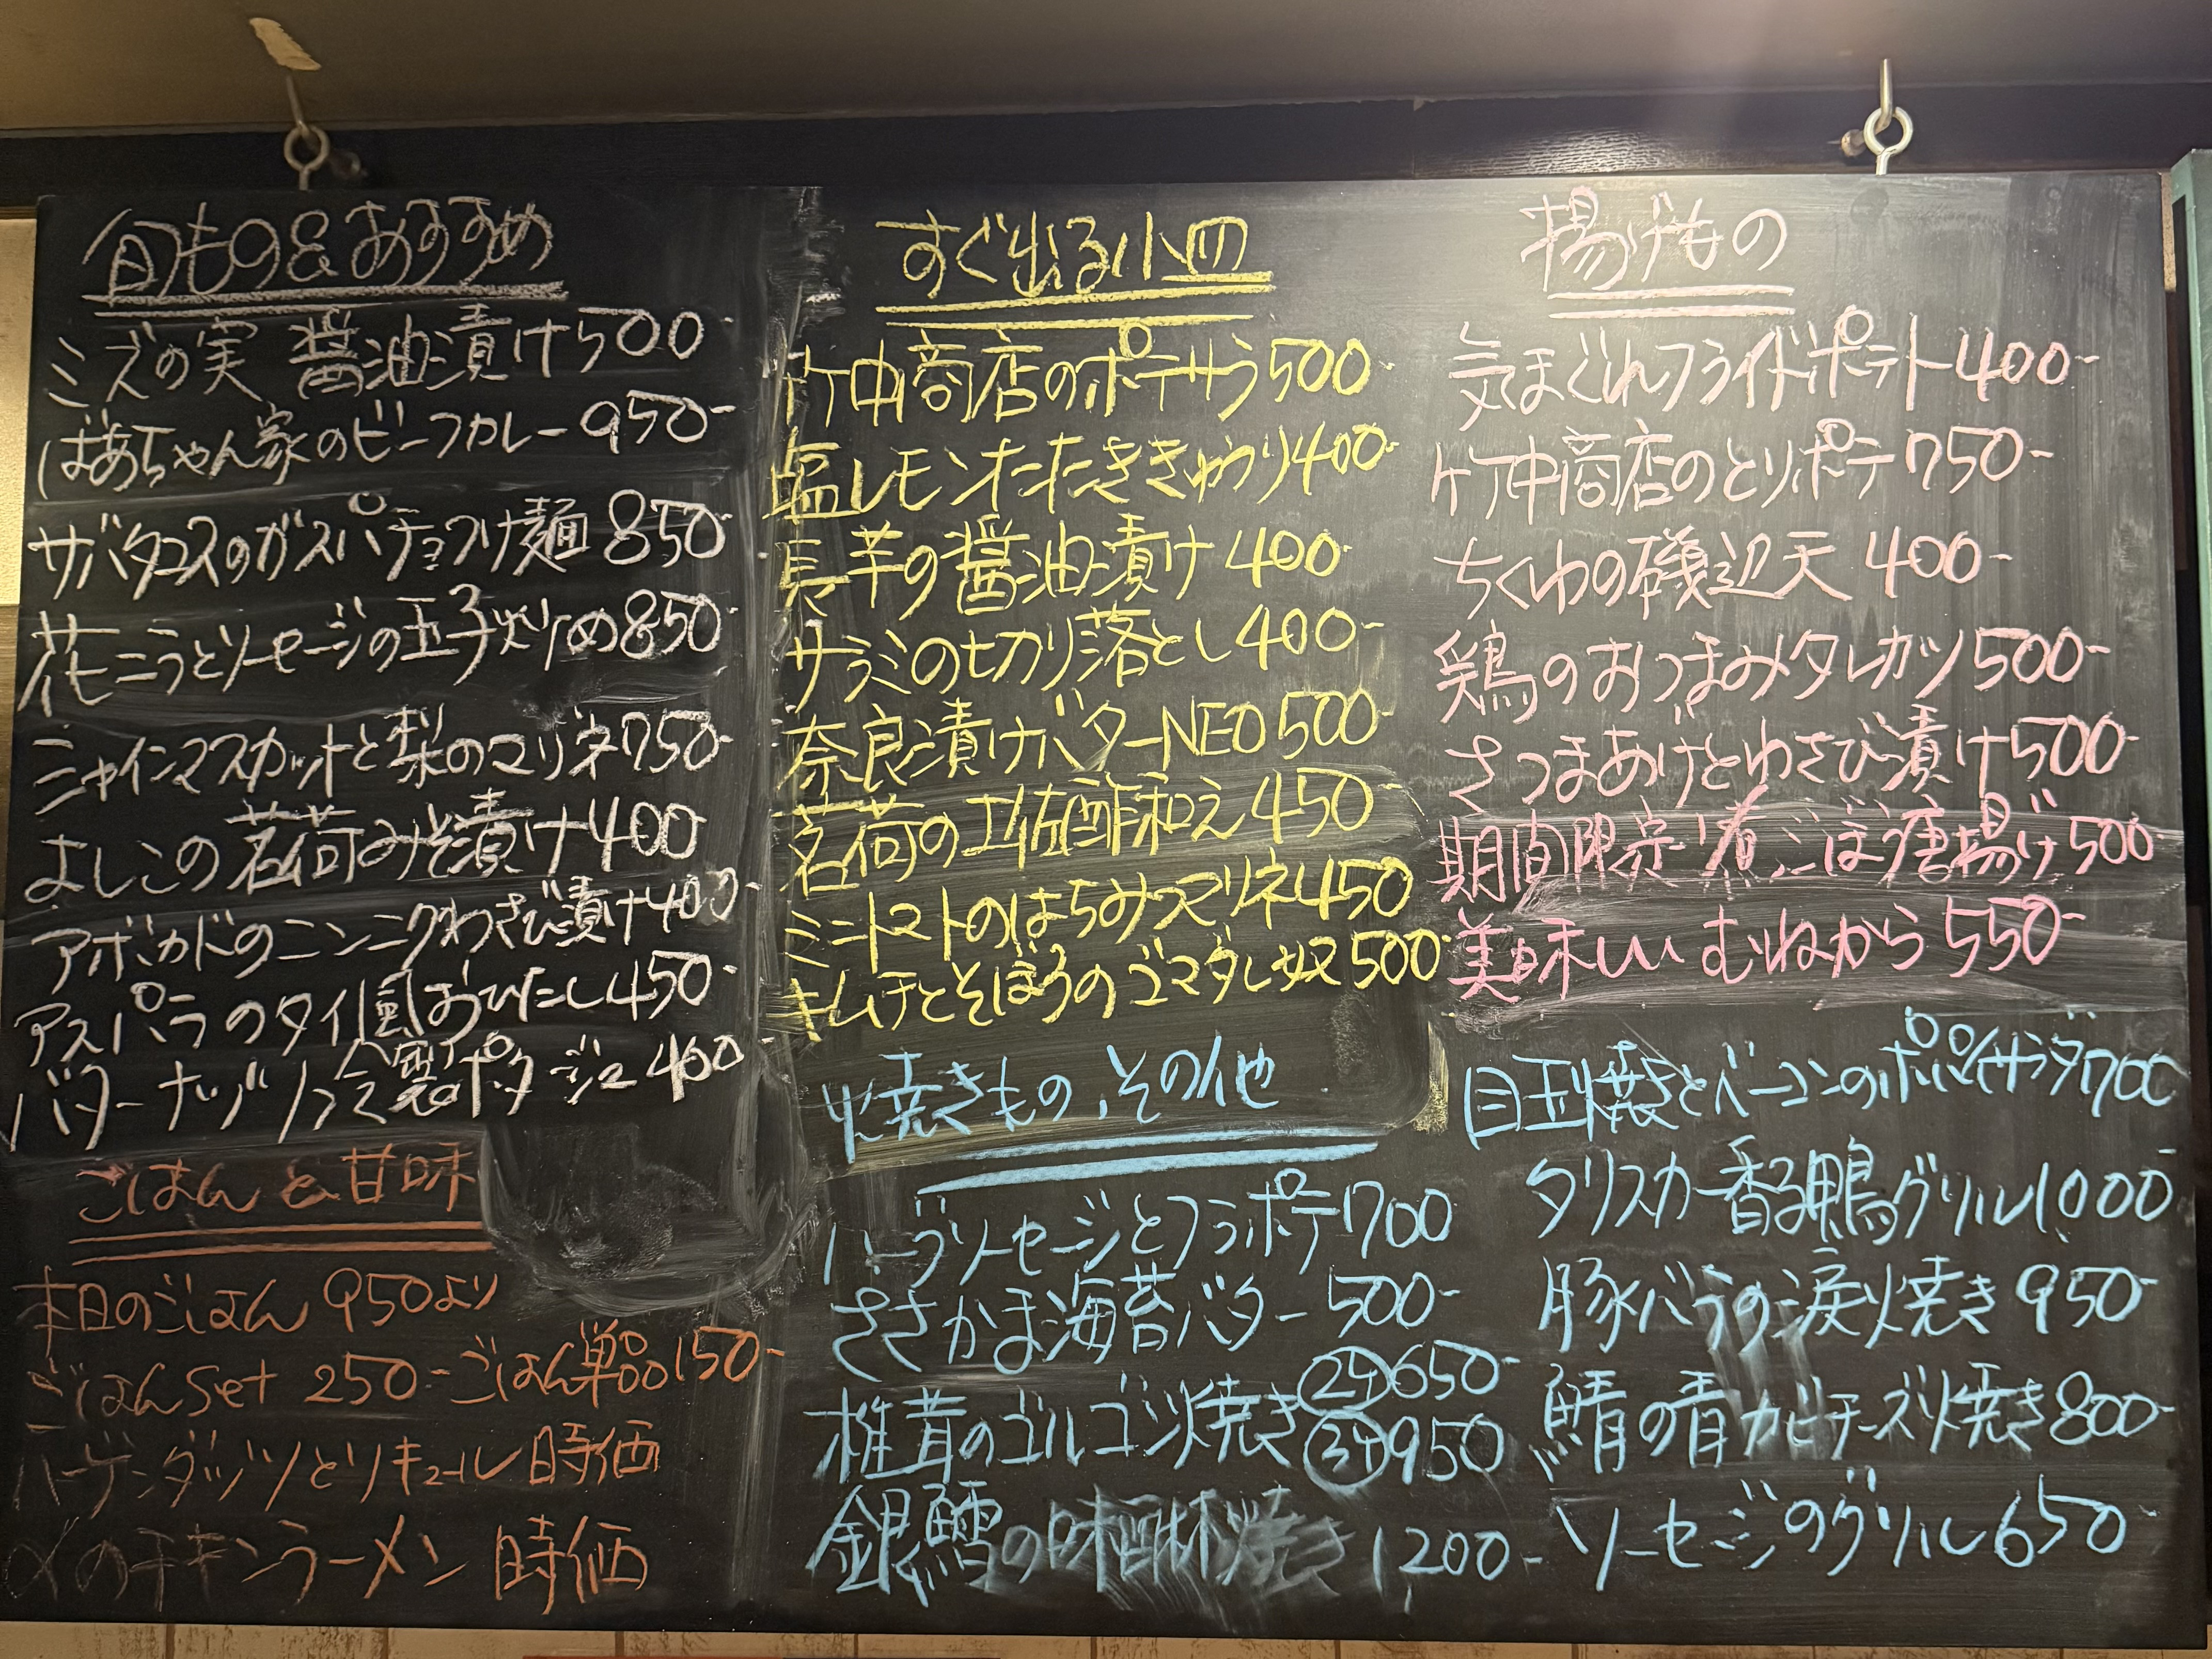 旬もの&おすすめ
ミズの実 醤油漬け500-
ばあちゃん家のビーフカレー950-
サバタコスのガスパチョつけ麺850-
花ニラとソーセージの玉子炒め850-
シャインマスカットと梨のマリネ750-
よしこの茗荷みそ漬け400-
アボカドのニンニクわさび漬け400-
アスパラのタイ風おひたし450-
バターナッツ 冷製ポタージュ400-
ごはんと甘味
本日のごはん 950より
ごはんset 250- ごはん単品150-
ハーゲンダッツとリキュール 時価
〆のチキンラーメン 時価
すぐ出る小皿
竹中商店のポテサラ500-
塩レモンたたききゅうり400-
長芋の醤油漬け 400-
サラミの切り落とし400-
奈良漬けバターNEO500-
茗荷の土佐酢和え450-
ミニトマトのはちみつマリネ450
キムチとそぼろのゴマダレ奴500-
焼きもの、その他
ハーブソーセージとフラポテ700
ささかま海苔バター500-
椎茸のゴルゴン焼き②ケ650-
③ケ950
銀鱈の味醂焼き1200-
揚げもの
気まぐれフライドポテト400-
竹中商店のとりポテ750-
ちくわの磯辺天 400-
鶏のおつまみタレカツ500-
さつまあげとわさび漬け500-
期間限定 煮ごぼう唐揚げ500-
美味しい むねから550-
目玉焼きとベーコンのポパイサラダ700
タリスカー香る鴨グリル1000-
豚バラの涙焼き950-
鯖の青カビチーズ焼き800-
ソーセージのグリル650-